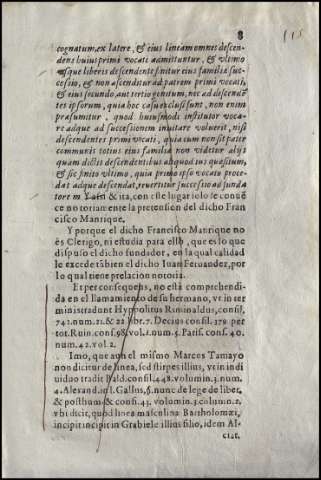 8
115
cognatum, ex latere, & eius lineam omnes descen
dens huius primi vocati admittuntur, & vltimo
usque liberis descendente finitur eius familia suc-
cessio, & non ascenditur ad patrem primi vocati,
& eius secundo, aut tertio genitum, nec ad descenden
tes ipsorum, quia hoc casu exclusi sunt, non enim
præsumitur, quod huiusmodi institutor voca-
re adque ad successionem inuitare voluerit, nisi
descendentes primi vocati, quia cum non sit pater
communis totius eius familia non videtur aliys
quam dictis descendentibus aliquod ius quæsitum,
& sic finito vltimo, quia primo ipso vocato proce-
dat adque descendat, reuertitur successio ad funda
tore m. & ita, con este lugar solo se conue
ce no toriamente la pretension del dicho Fran
cisco Manrique.
Y porque el dicho Francisco Manrique no
ès Clerigo, ni estudia para ello, que es lo que
dispuso el dicho fundador, en la qual calidad
le excede tãbien el dicho Iuan Fernandez, por
lo qual tiene prelacion notoria.
Et per consequens, no està comprehendi-
da en el llamamiento de su hermano, vt in ter
minis tradunt Hyppolitus Riminaldus, consil.
742. num. 21. & 22. libr. 7. Decius consil. 379. per
tot. Ruin. conf. 98. vol. 1. num. 5. Parif. conf. 40.
num. 42. vol. 2.
Imo, que aun el mismo Marcos Tamayo
non dicitur de linea, sed stirpes illius, vt in indi
uiduo tradit Bald. consil. 448. volumin. 3. num.
4. Alexand. in l. Gallus, §. nunc de lege de liber.
& posthum & consi. 43. volumin. 3. column. 2.
vbi dicit, quod linea masculina Bartholomæi,
incipit incipit in Grabiele illius filio, idem Al-
ciat.